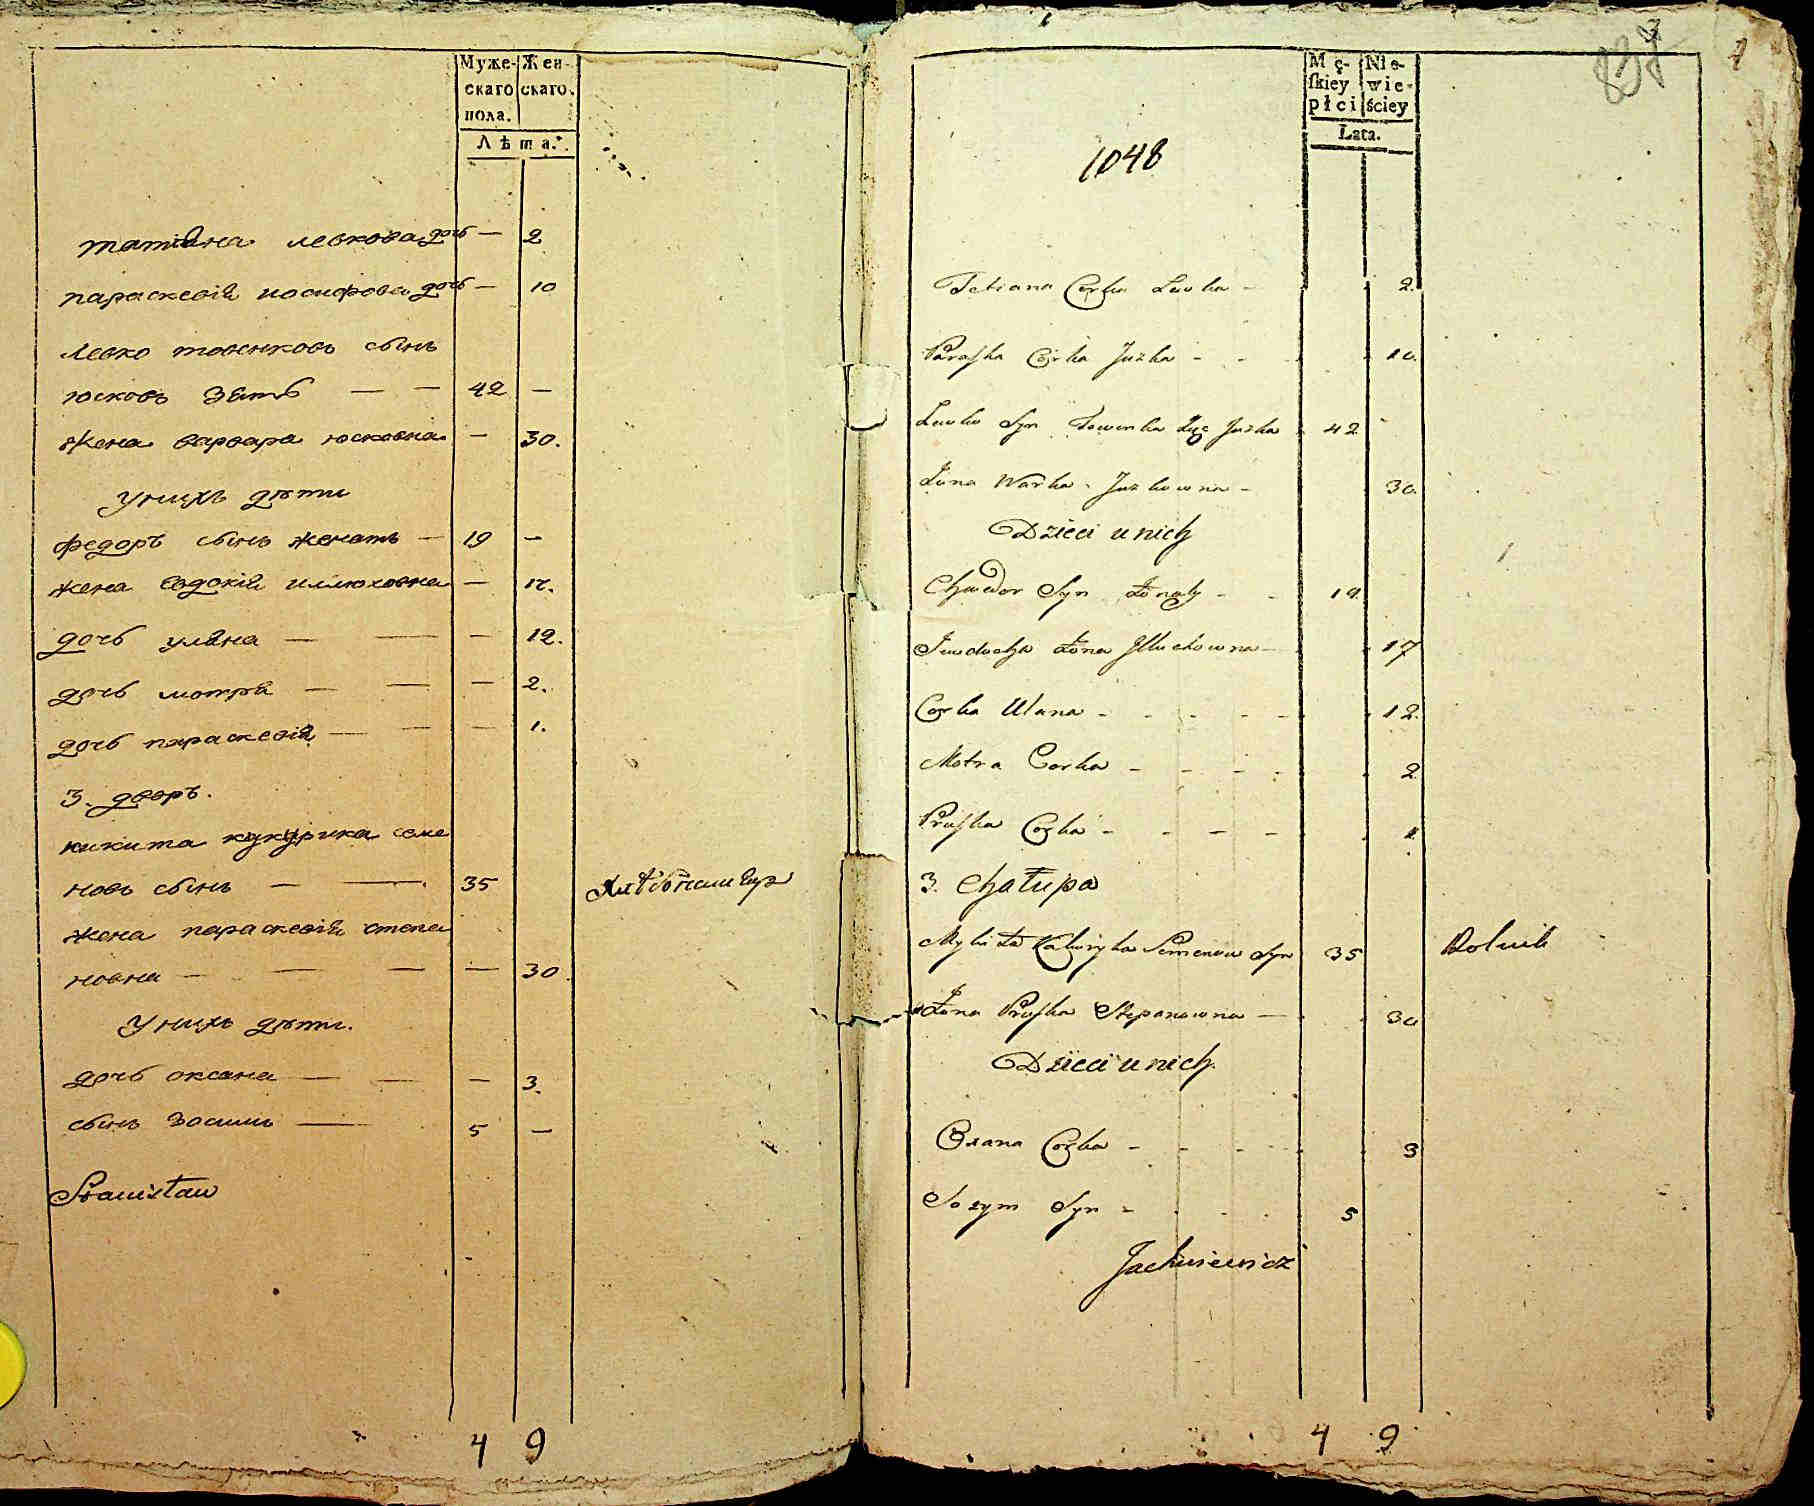 Муже- Жен-
скаго скаго.
пола.
Лѣта.
татіѧна левкова дочь — 2
параскевіѧ иосифова дочь — 10
левко товенковъ сынъ
юсковъ зѧть — — 42 —
жена варвара юсковна — 30.
у нихъ дѣти
федоръ сынъ женатъ — 19 —
жена евдокіѧ иллюховна — 17.
дочь улѧна — — — 12.
дочь мотрѧ — — — 2.
дочь параскевіѧ — — — 1.
3. дворъ.
никита кукурика семе
новъ сынъ — — 35 Хлѣбопашецъ
жена параскевіѧ степа
новна — — — — 30
У нихъ дѣти.
дочь оксана — — — 3.
сынъ зосимъ — 5 —
Stanisław
4 9
837
1048
Mę- Nie-
skiey wie-
płci ściey
Lata.
Tetiana Corka Lewka - 2.
Paraſka Corka Juzka - - 10.
Lewko Syn Towenka Zięć Juzka 42
Żona Warka Juzkowna - 30.
Dzieci u nich
Chwedor Syn Żonaty - - 19.
Jewdocha Żona Illuchowna - 17
Corka Ulana - - - - - 12.
Motra Corka - - - - 2.
Praſka Corka - - - - 1.
3. Chałupa
Mykita Kukuryka Semenow Syn 35 Rolnik
Żona Praſka Stepanowna — 30
Dzieci u nich.
Oxana Corka - - - - 3
Sozym Syn - - - - 5
Jachimowicz
4 9